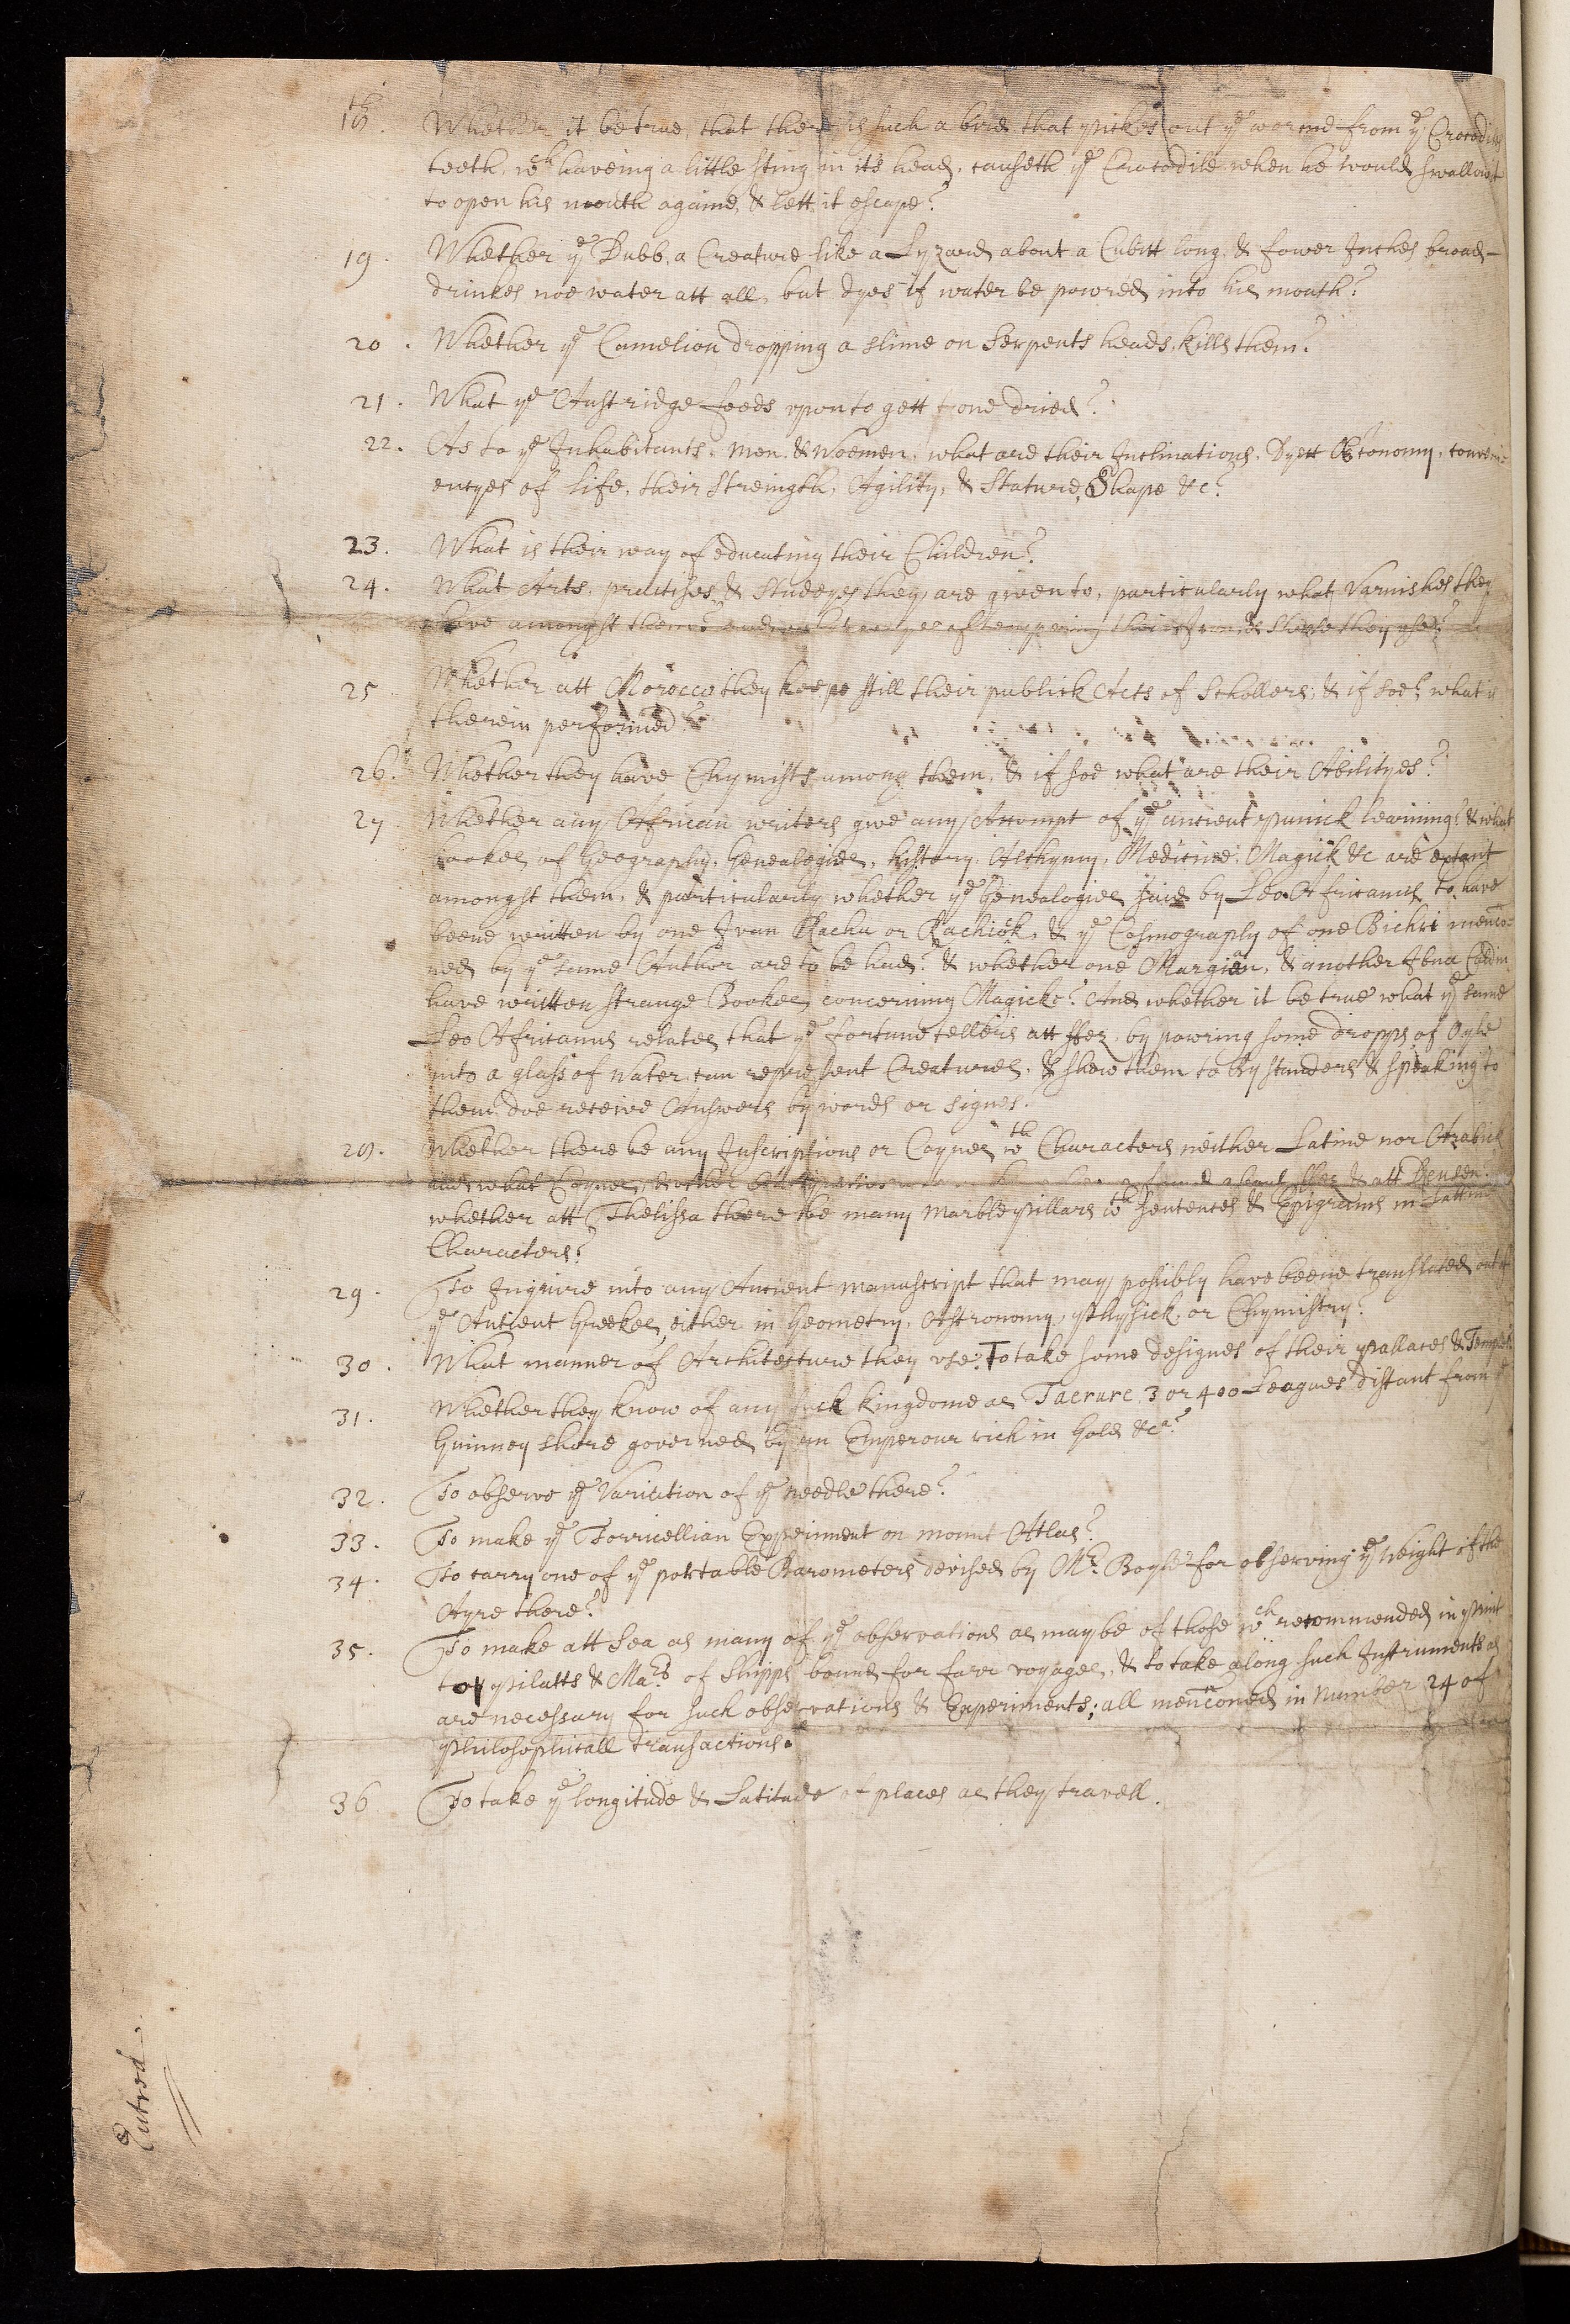 18. Whether it be true, that there is such a bird that pickes out ye wormes from ye Crocodiles
teeth, wch haveing a little sting in it's head, causeth ye Crocodile when he would swallow it
to open his mouth againe, & lett it escape?
19. Whether ye Dubb, a Creature like a Lyzard about a Cubitt long, & fower Inches broad
drinkes noe water att all, but dyes if water be powred into his mouth?
20. Whether ye Camelion dropping a slime on Serpents heads, kills them?
21. What ye Austridge feeds upon to gett one dried?
22. As to ye Inhabitants, Men, & Woemen, what are their Inclinations, Dyett Oeconomy, conveni-
encyes of life, their streingth, Agility, & Stature, Shape &c?
23. What is their way of educating their Children?
24. What Arts, practises, & Studeyes they are given to, particularly what Varnishes they
have amongst them? and what wayes of tempering their Arms & Steele they use?
25 Whether att Morocco they keepe still their publick Acts of Schollers; & if soe, what is
therein performed?
26. Whether they have Chymists among them, & if soe what are their Abilityes?
27 Whether any African writers give any Accompt of ye ancient Punick learning? & what
bookes of Geography, Genealogies, history, Alchymy, Medicine, Magick &c are extant
amongst them, & particularly whether ye Genealogies said by Leo Africanus to have
beene written by one Ivan Racha or Rachick, & ye Cosmography of one Bichri mencō-
ned by ye same Author are to be had? & whether one Margian, & another Ibna
have written strange Bookes concerning Magicke? And whether it be true what ye same
Leo Africanus relates that ye fortune tellers att ffez, by powring some dropps of Oyle
into a glass of water, can represent Creatures, & shew them to by standers & speaking to
them, doe receive Answers by words or signes.
28. Whether there be any Inscriptions or Coynes wth Characters neither Latine nor Arabick
and what Coynes, & other Antiquities found about ffez & att
whether att Thelissa there be many marble pillars wth sentences & Epigrams in Lattine
Characters?
29. To Inquire into any Ancient manuscript that may possibly have beene translated out of
ye Antient Greekes, either in Geometry, Astronomy, Physick, or Chymistry?
30. What manner of Architecture they use; To take some designes of their pallaces & Temples?
31. Whether they know of any such kingdome as Tacrure 3 or 400 Leagues distant from ye
Guinney shore governed by an Emperour rich in Gold &ca?
32. To observe ye Variation of ye needle there?
33. To make ye Torricellian Experiment on mount Atlas?
34. To carry one of ye portable Barometers devised by Mr. Boyle for observing ye weight of the
Ayre there?
35. To make att Sea as many of ye observations as may be of those wch recommended in print
to pilatts & Mars of Shipps bound for farr voyages, & to take along such Instruments as
are necessary for such observations & Experiments; all mencōned in Number 24 of
Philosophicall transactions.
36 To take ye longitude & Latitude of places as they travell.
Entred